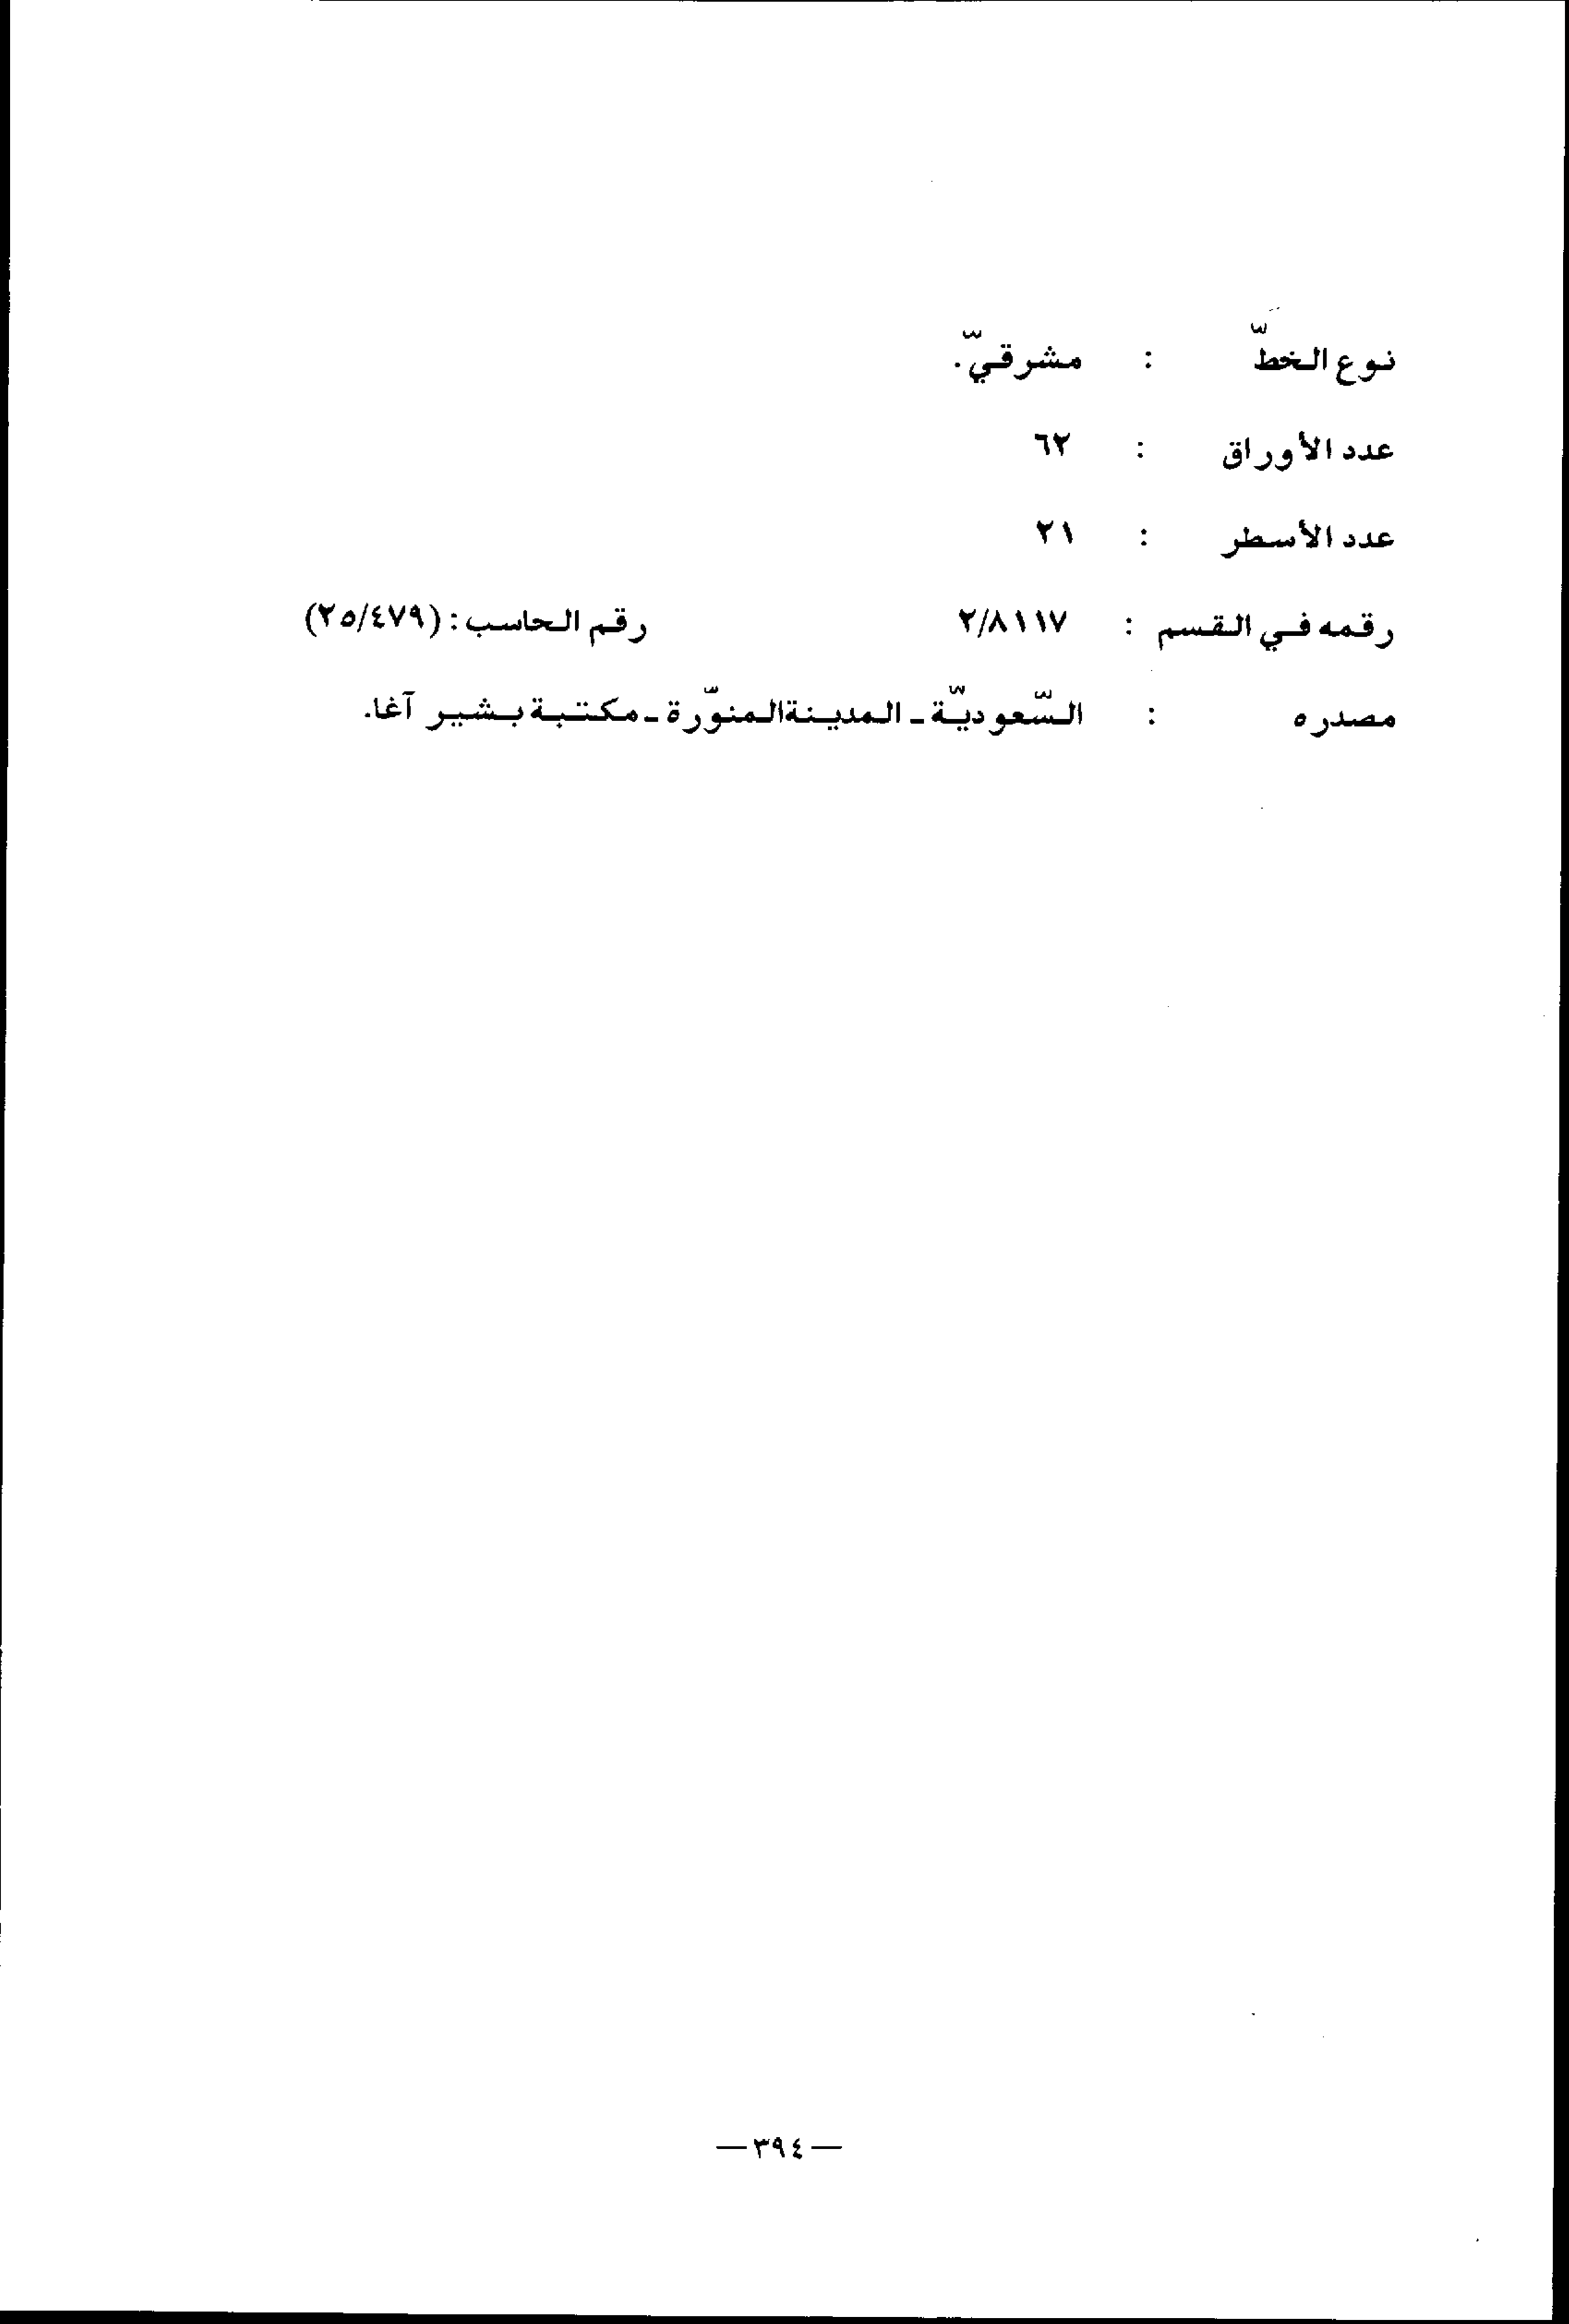 نوع الخطّ : مشرقيّ.
عدد الأوراق : ٦٢
عدد الأسطر : ٢١
رقمه في القسم : ٢/٨١١٧ رقم الحاسب : (٢٥/٤٧٩)
مصدره : السّعوديّة ـ المدينة المنوّرة ـ مكتبة بشير آغا.
— ٣٩٤ —